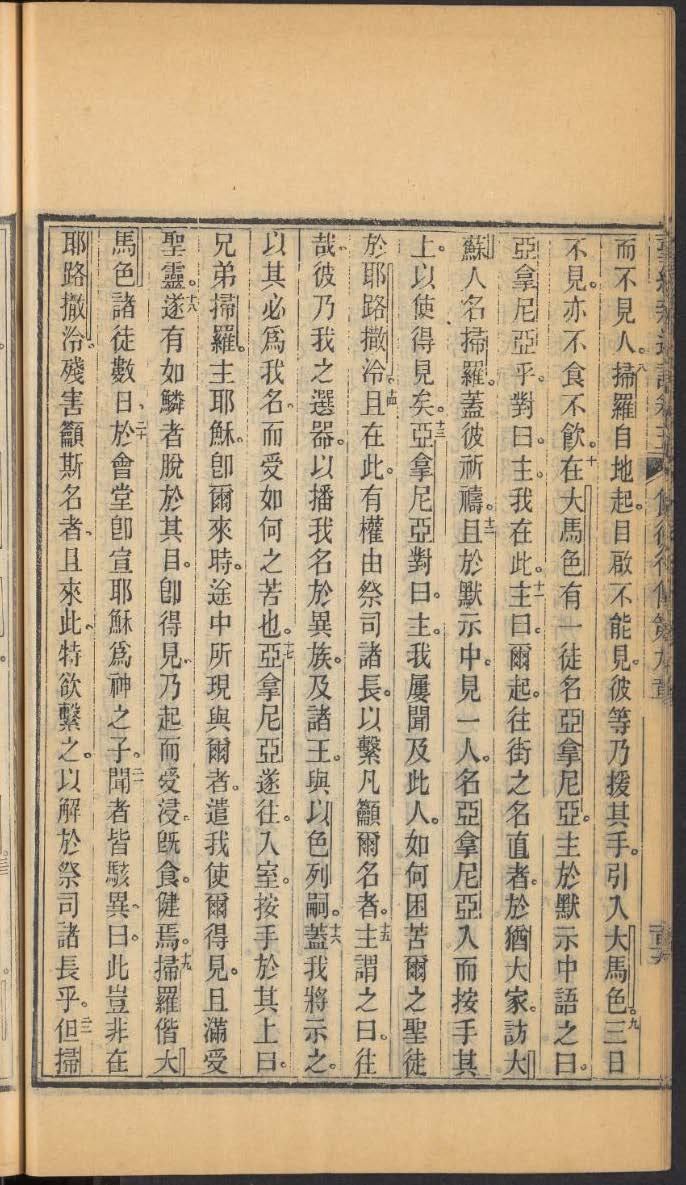 而不見人。八掃羅自地起。目啟不能見。彼等乃援其手。引入大馬色。九三日
不見。亦不食不飲。十在大馬色有一徒名亞拿尼亞。主於默示中語之曰。
亞拿尼亞乎。對曰。主。我在此。十一主曰。爾起。往街之名直者。於猶大家。訪大
蘇人名掃羅。蓋彼祈禱。十二且於默示中。見一人。名亞拿尼亞入而按手其
上。以使得見矣。十三亞拿尼亞對曰。主。我屢聞及此人。如何困苦爾之聖徒
於耶路撒冷。十四且在此。有權由祭司諸長。以繫凡籲爾名者。十五主謂之曰。往
哉、彼乃我之選器。以播我名於異族。及諸王。與以色列嗣。十六蓋我將示之。
以其必爲我名、而受如何之苦也。十七亞拿尼亞遂往。入室。按手於其上曰。
兄弟掃羅。主耶穌。卽爾來時。途中所現與爾者。遣我使爾得見。且滿受
聖靈。十八遂有如鱗者脫於其目。卽得見、乃起而受浸、旣食。健焉。十九掃羅偕大
馬色諸徒數日、二十於會堂卽宣耶穌爲神之子。二一聞者皆駭異、曰。此豈非在
耶路撒冷。殘害籲斯名者、且來此、特欲繫之。以解於祭司諸長乎。二二但掃